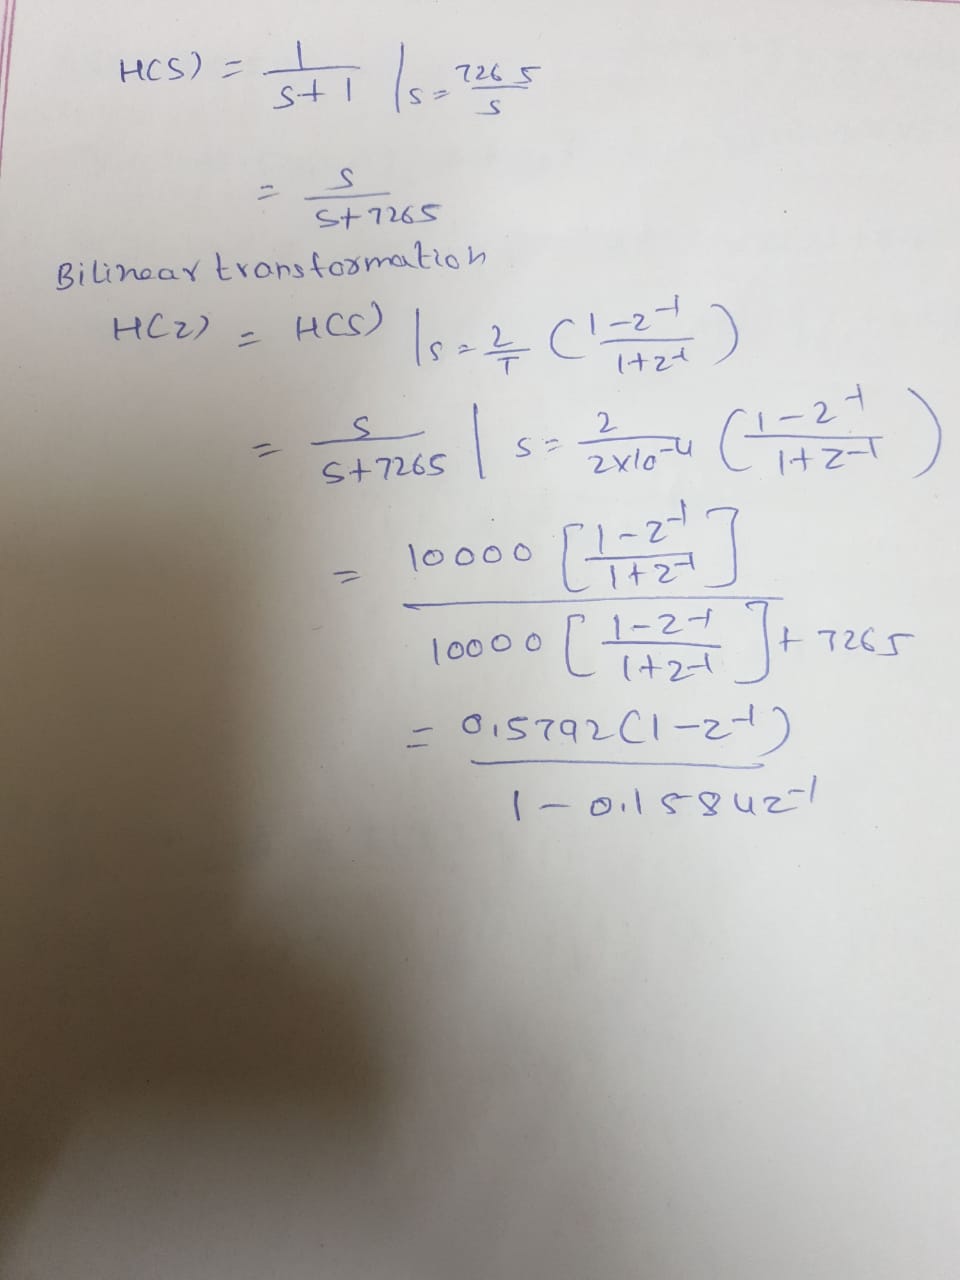 H(S) = 1/(S+1) |s = 7265/s
= S/(S+7265)
Bilinear transformation
H(z) = H(S) |s = 2/T ((1-z^-1)/(1+z^-1))
= S/(S+7265) | s = 2/(2x10^-4) ((1-z^-1)/(1+z^-1))
= 10000 [(1-z^-1)/(1+z^-1)]
10000 [(1-z^-1)/(1+z^-1)] + 7265
= 0.5792(1-z^-1)
1 - 0.1584z^-1